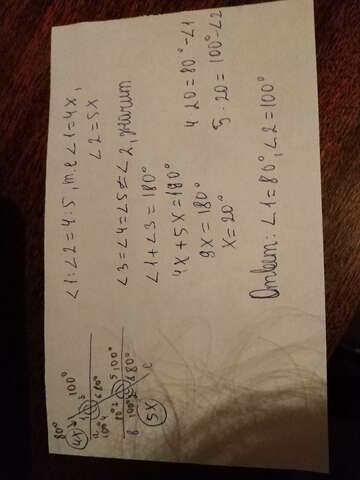 ∠1:∠2=4:5, т.е ∠1=4x,
∠2=5x
∠3=∠4=∠5=∠2, значит
∠1+∠3=180°
4x+5x=180°
9x=180°
x=20°
4·20=80°-∠1
5·20=100°-∠2
Ответ: ∠1=80°, ∠2=100°
80°
4x
100°
1
3
a
100°
4
6
80°
80°
2
5
100°
в
100°
80°
c
5x